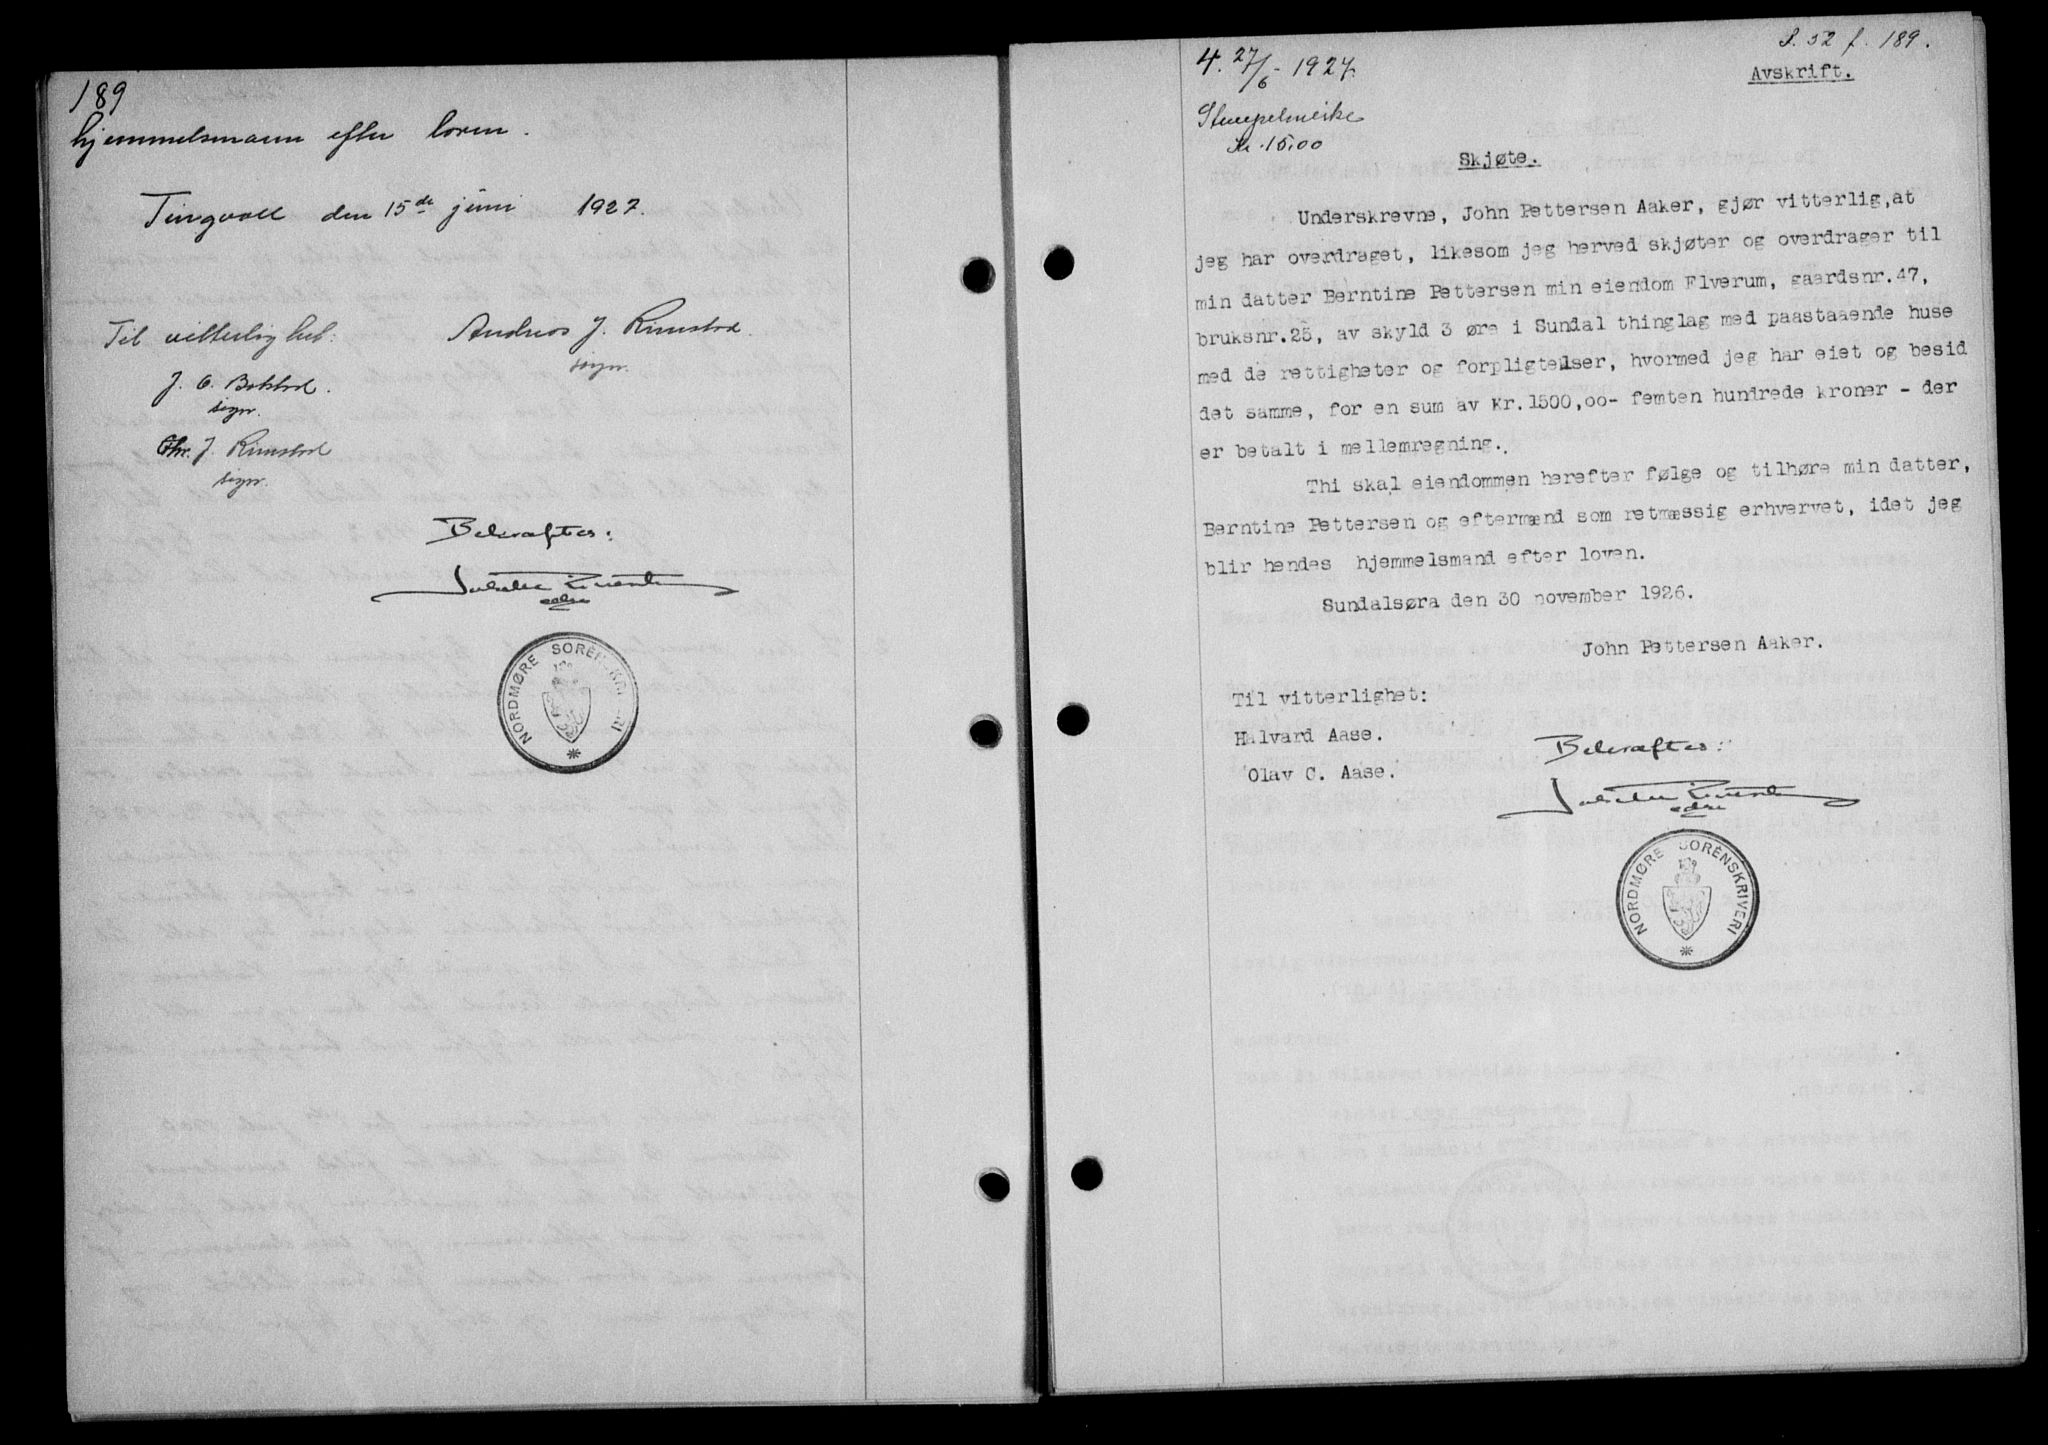 189
hjemmelsmann efter loven.
Tingvoll den 15de juni 1927.
Til vitterlighet:
Andreas J. Rimstad
sign.
J. O. Bolstad.
sign.
Chr. J. Rimstad
sign.
Bekræftes:
NORDMØRE SORENSKRIVERI
4. 27/6 - 1927.
S. 52 f. 189.
Avskrift.
Stempelmerke
Kr. 15,00
Skjøte.
Underskrevne, John Pettersen Aaker, gjør vitterlig, at
jeg har overdraget, likesom jeg herved skjøter og overdrager til
min datter Berntine Pettersen min eiendom Elverum, gaardsnr. 47,
bruksnr. 25, av skyld 3 øre i Sundal thinglag med paastaaende huse
med de rettigheter og forpligtelser, hvormed jeg har eiet og besid
det samme, for en sum av Kr. 1500,oo- femten hundrede kroner - der
er betalt i mellemregning.
Thi skal eiendommen herefter følge og tilhøre min datter,
Berntine Pettersen og eftermænd som retmæssig erhvervet, idet jeg
blir hendes hjemmelsmand efter loven.
Sundalsøra den 30 november 1926.
John Pettersen Aaker.
Til vitterlighet:
Halvard Aase.
Olav C. Aase.
Bekræftes:
NORDMØRE SORENSKRIVERI